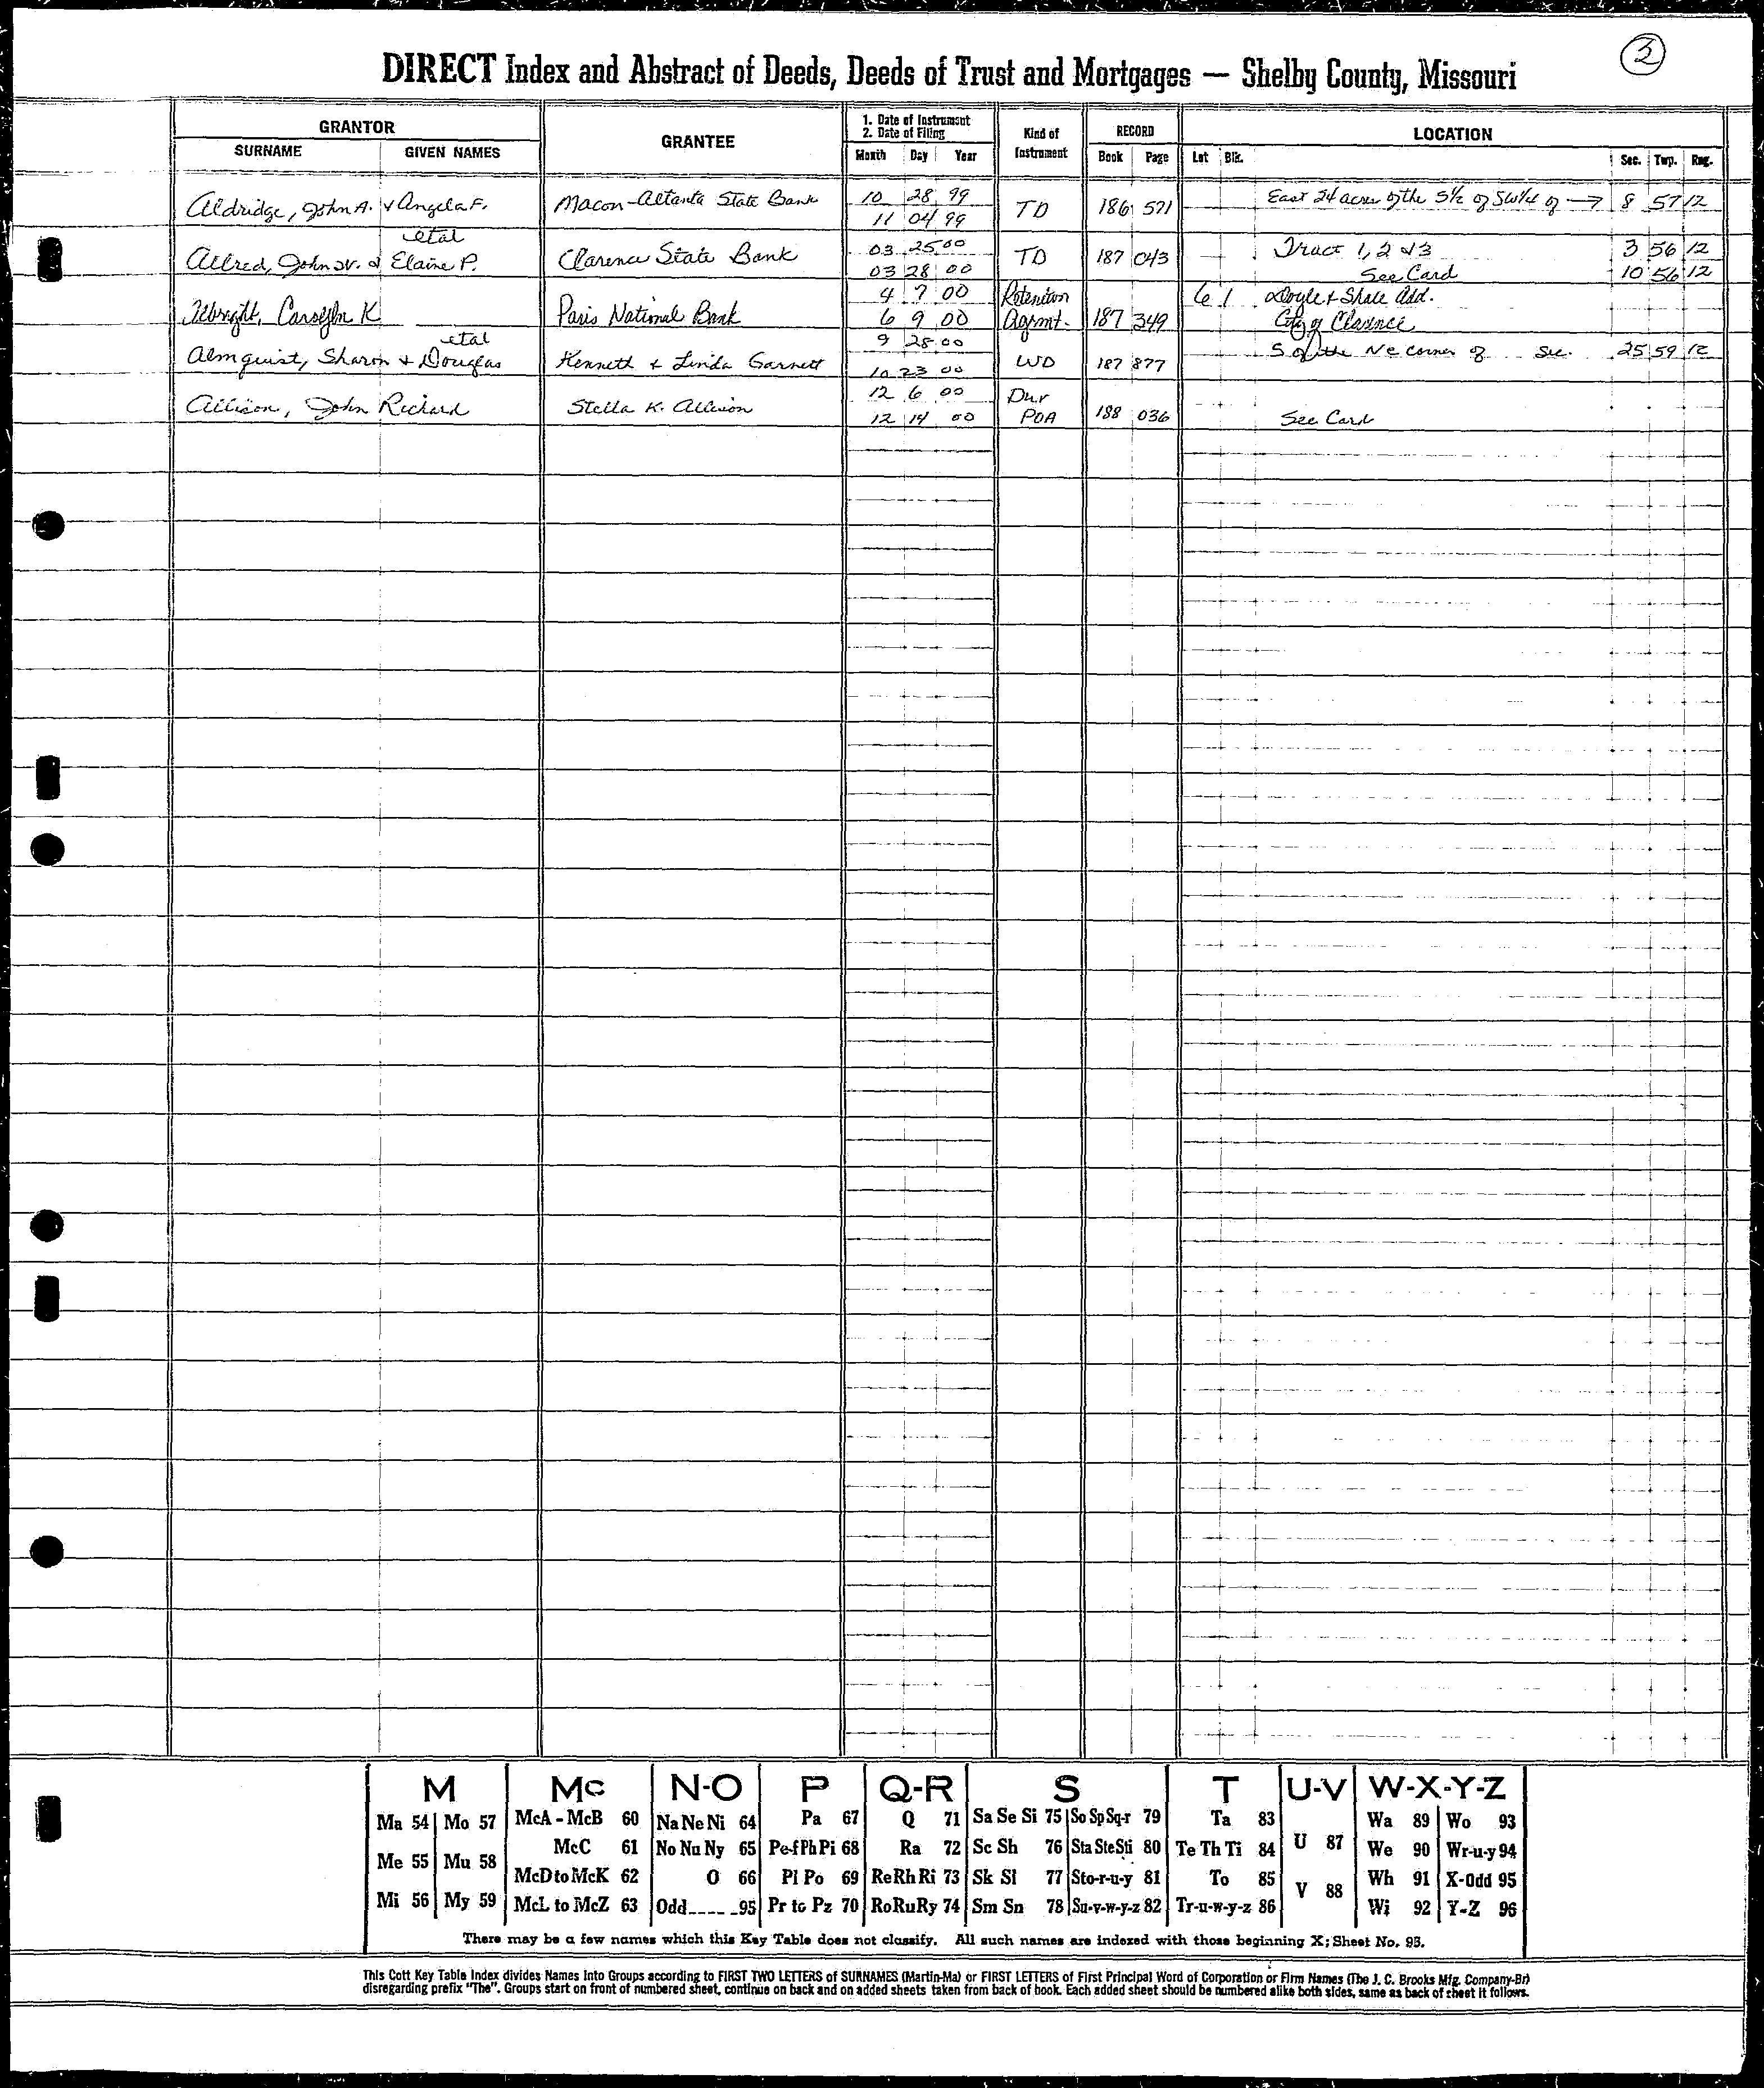 3
DIRECT Index and Abstract of Deeds, Deeds of Trust and Mortgages — Shelby County, Missouri
GRANTOR GRANTEE 1. Date of Instrument 2. Date of Filing Kind of Instrument RECORD LOCATION
SURNAME GIVEN NAMES Month Day Year Book Page Lot Blk. Sec. Twp. Rng.
Aldridge, John A. & Angela F. Macon-Altanta State Bank 10 28 99 TD 186 571 East 24 acres of the S½ of SW¼ of → 8 57 12
11 04 99
etal
Allred, John W. & Elaine P. Clarence State Bank 03 25 00 TD 187 043 Tract 1, 2 & 3 3 56 12
03 28 00 See Card 10 56 12
Albright, Carolyn K Paris National Bank 4 7 00 Retention 187 349 6 1 Doyle & Shale Add.
6 9 00 Agrmt. City of Clarence
etal
Almquist, Sharon & Douglas Kenneth & Linda Garnett 9 28 00 WD 187 877 S of the NE corner of Sec. 25 59 12
10 23 00
Allison, John Richard Stella K. Allison 12 6 00 Dur 188 036
12 14 00 POA See Card
M Mc N-O P Q-R S T U-V W-X-Y-Z
Ma 54 Mo 57 McA - McB 60 Na Ne Ni 64 Pa 67 Q 71 Sa Se Si 75 So Sp Sq-r 79 Ta 83 Wa 89 Wo 93
McC 61 No Nu Ny 65 Pe-f Ph Pi 68 Ra 72 Sc Sh 76 Sta Ste Sti 80 Te Th Ti 84 U 87 We 90 Wr-u-y 94
Me 55 Mu 58
McD to McK 62 O 66 Pl Po 69 Re Rh Ri 73 Sk Sl 77 Sto-r-u-y 81 To 85 Wh 91 X-Odd 95
V 88
Mi 56 My 59 McL to McZ 63 Odd 95 Pr to Pz 70 Ro Ru Ry 74 Sm Sn 78 Su-v-w-y-z 82 Tr-u-w-y-z 86 Wi 92 Y-Z 96
There may be a few names which this Key Table does not classify. All such names are indexed with those beginning X; Sheet No. 95.
This Cott Key Table Index divides Names Into Groups according to FIRST TWO LETTERS of SURNAMES (Martin-Ma) or FIRST LETTERS of First Principal Word of Corporation or Firm Names (The J. C. Brooks Mfg. Company-Br)
disregarding prefix "The". Groups start on front of numbered sheet, continue on back and on added sheets taken from back of book. Each added sheet should be numbered alike both sides, same as back of sheet it follows.